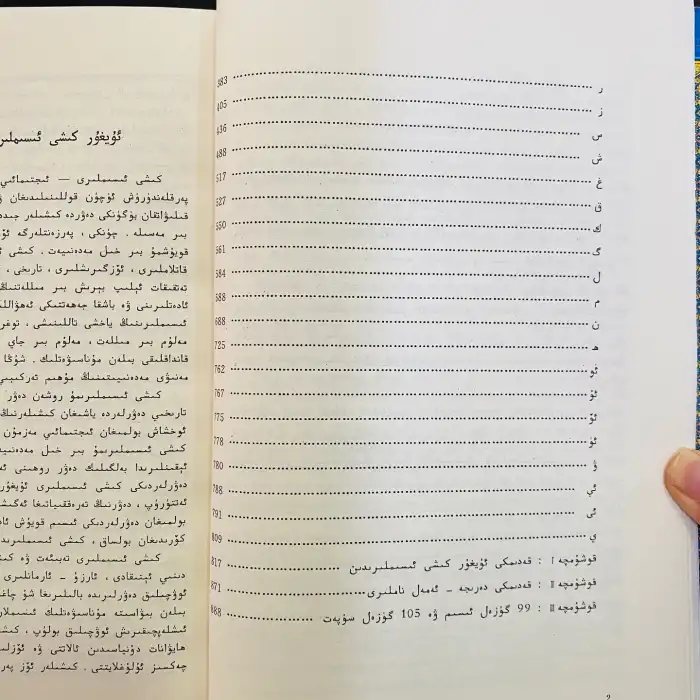 ر 383
ز 405
س 436
ش 488
غ 517
ق 527
ك 550
گ 561
ل 584
م 588
ن 688
ھ 725
ئو 762
ئۇ 767
ئۆ 775
ئۈ 778
ۋ 780
ئې 788
ئى 791
ي 809
قوشۇمچە Ⅰ : قەدىمكى ئۇيغۇر كىشى ئىسىملىرىدىن 817
قوشۇمچە Ⅱ : قەدىمكى دەرىجە - ئەمەل ناملىرى 871
قوشۇمچە Ⅲ : 99 گۈزەل ئىسىم ۋە 105 گۈزەل سۈپەت 888
2
ئۇيغۇر كىشى
كىشى ئىسىملىرى — ئىجتىمائىي
پەرقلەندۈرۈش ئۈچۈن قوللىنىلىدىغان
قىلىۋاتقان بۈگۈنكى دەۋردە كىشىلەر
بىر مەسىلە . چۈنكى ، پەرزەنتلەرگە
قويۇشمۇ بىر خىل مەدەنىيەت . كىشى
قاتلاملىرى ، ئۆزگىرىشلىرى ، تارىخى ،
تەتقىقات ئېلىپ بېرىش بىر مىللەتنىڭ
ئادەتلىرىنى ۋە باشقا جەھەتتىكى
ئىسىملىرىنىڭ ياخشى تاللىنىشى ،
مەلۇم بىر مىللەت ، مەلۇم بىر جاي
قانداقلىقى بىلەن مۇناسىۋەتلىك . شۇڭا
مەنىۋى مەدەنىيىتىنىڭ مۇھىم
كىشى ئىسىملىرىمۇ روشەن دەۋر
تارىخىي دەۋرلەردە ياشىغان كىشىلەرنىڭ
ئوخشاش بولمىغان ئىجتىمائىي مەزمۇن
كىشى ئىسىملىرىمۇ بىر خىل
ئېقىنلىرىدا بەلگىلىك دەۋر روھىنى
دەۋرلەردىكى كىشى ئىسىملىرى
ئەتتۈرۈپ ، دەۋرنىڭ تەرەققىياتىغا
بولمىغان دەۋرلەردىكى ئىسىم قويۇش
كۆرىدىغان بولساق ، كىشى ئىسىملىرىنىڭ
كىشى ئىسىملىرى تەبىئەت ۋە
دىنىي ئېتىقادى ، ئارزۇ - ئارمانلىرى
ئوۋچىلىق دەۋرلىرىدە بالىلىرىغا شۇ
بىلەن بىۋاسىتە مۇناسىۋەتلىك
ئىشلەپچىقىرىش ئوۋچىلىق بولۇپ ،
ھايۋانات دۇنياسىدىن ئالاتتى ۋە
چەكسىز ئۇلۇغلايتتى . كىشىلەر ئۆز